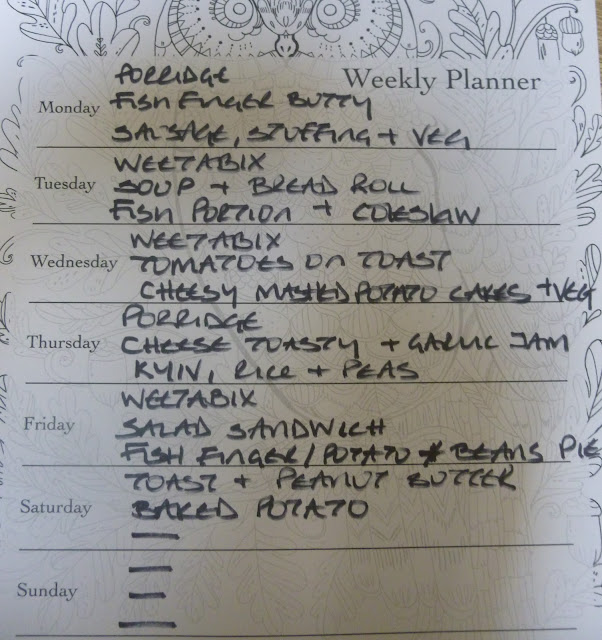 Weekly Planner
PORRIDGE
Monday FISH FINGER BUTTY
SAUSAGE, STUFFING + VEG
WEETABIX
Tuesday SOUP + BREAD ROLL
FISH PORTION + COLESLAW
WEETABIX
Wednesday TOMATOES ON TOAST
CHEESY MASHED POTATO CAKES + VEG
PORRIDGE
Thursday CHEESE TOASTY + GARLIC JAM
KYIV, RICE + PEAS
WEETABIX
Friday SALAD SANDWICH
FISH FINGER/POTATO + BEANS PIE
TOAST + PEANUT BUTTER
Saturday BAKED POTATO
—
—
Sunday —
—